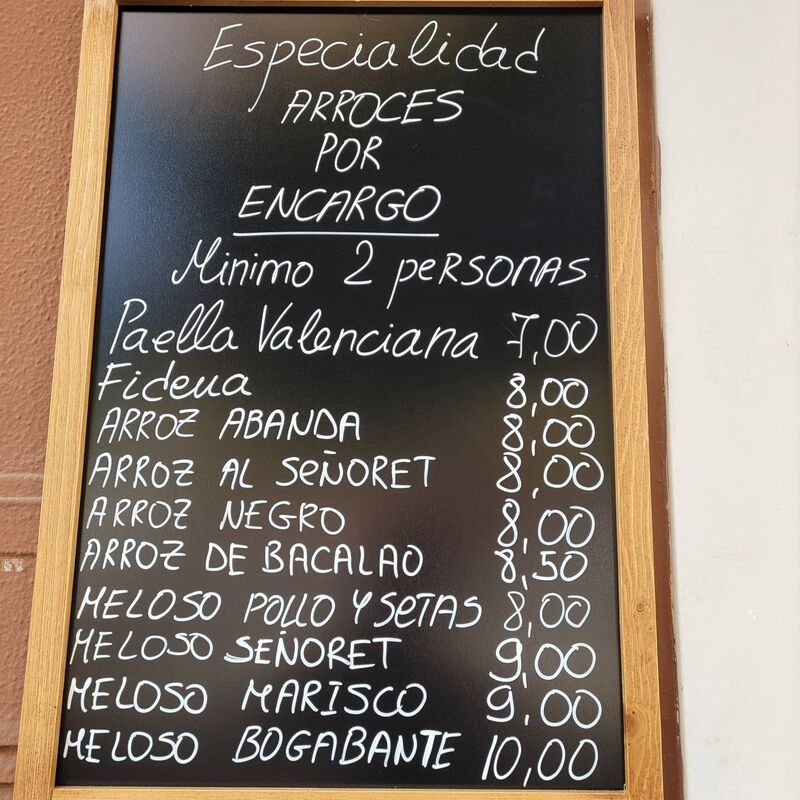 Especialidad
ARROCES
POR
ENCARGO
Minimo 2 personas
Paella Valenciana 7,00
Fideua 8,00
ARROZ ABANDA 8,00
ARROZ AL SEÑORET 8,00
ARROZ NEGRO 8,00
ARROZ DE BACALAO 8,50
MELOSO POLLO Y SETAS 8,00
MELOSO SEÑORET 9,00
MELOSO MARISCO 9,00
MELOSO BOGABANTE 10,00